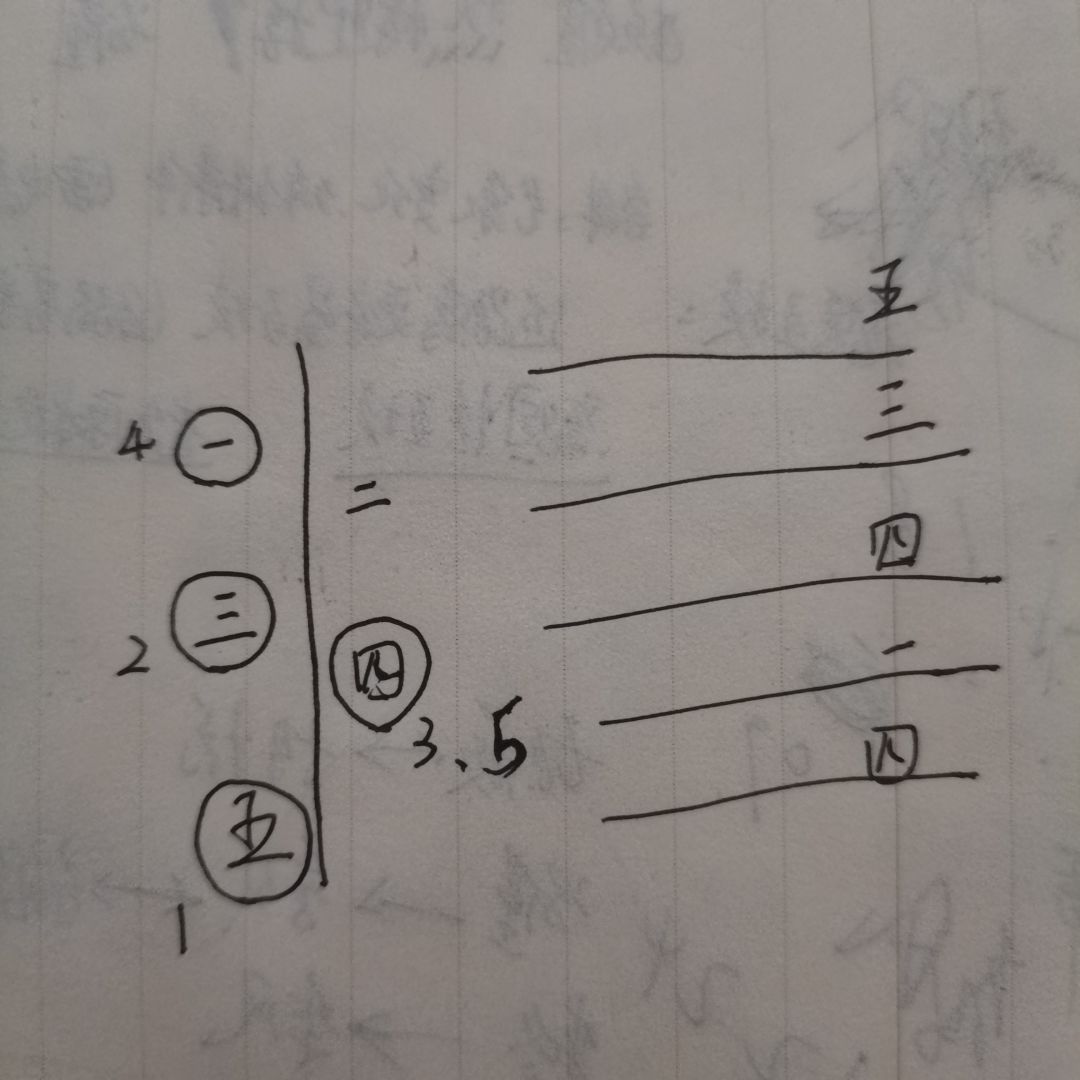 五
三
4 一
二
四
三
2
四
一
3、5
四
五
1